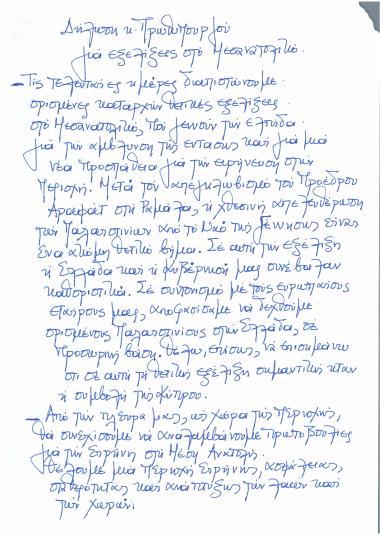 Δήλωση κ. Πρωθυπουργού
για εξελίξεις στο Μεσανατολικό.
– Τις τελευταίες ημέρες διαπιστώνουμε
ορισμένες καταρχήν θετικές εξελίξεις
στο Μεσανατολικό, που γεννούν την ελπίδα
για την άμβλυνση της έντασης και για μια
νέα προσπάθεια για την ειρήνευση στην
περιοχή. Μετά τον απεγκλωβισμό του Προέδρου
Αραφάτ στη Ραμάλας, η χθεσινή απελευθέρωση
των Παλαιστινίων από το Ναό της Γέννησης είναι
ένα ακόμη θετικό βήμα. Σε αυτή την εξέλιξη
η Ελλάδα και η κυβέρνησή μας συνέβαλαν
καθοριστικά. Σε συντονισμό με τους ευρωπαίους
εταίρους μας, αποφασίσαμε να δεχθούμε
ορισμένους Παλαιστινίους στην Ελλάδα, σε
προσωρινή βάση. Θέλω, επίσης, να επισημάνω
ότι σε αυτή τη θετική εξέλιξη σημαντική ήταν
η συμβολή της Κύπρου.
– Από την πλευρά μας, ως χώρα της περιοχής,
θα συνεχίσουμε να αναλαμβάνουμε πρωτοβουλίες
για την Ειρήνη στη Μέση Ανατολή.
Θέλουμε μια περιοχή Ειρήνης, ασφάλειας,
σταθερότητας και ανάπτυξης των λαών και
των χωρών.